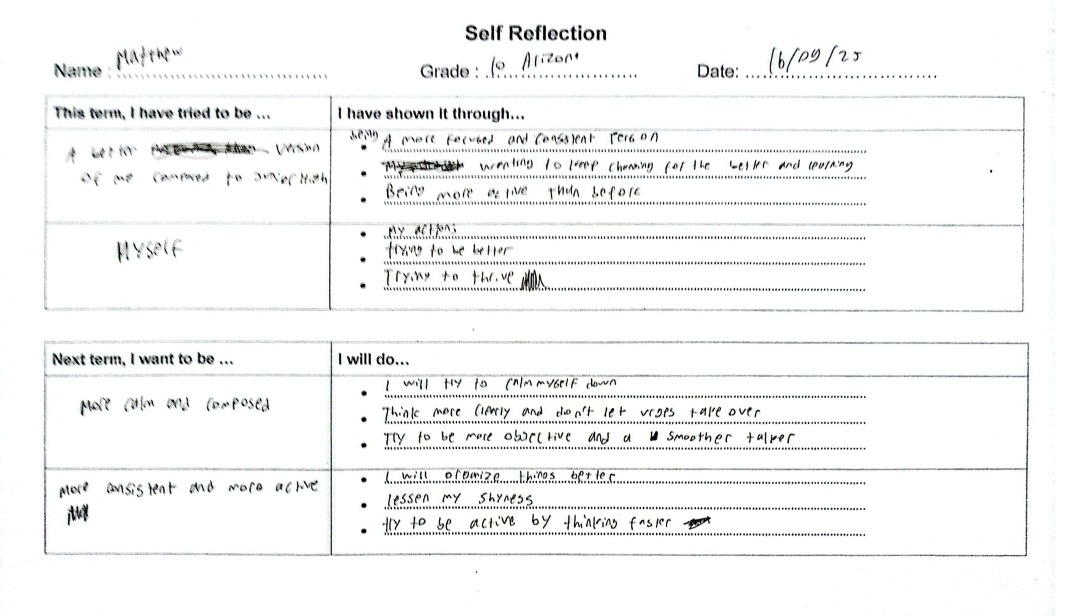 Self Reflection
Name : Matthew
Grade : 10 Arizona
Date: 16/09/25
This term, I have tried to be ...
I have shown it through...
A better version
of me compared to Junior High
being A more focused and consistent Person
wanting to keep changing for the better and learning
Being more active than before
Myself
My actions
Trying to be better
Trying to thrive
Next term, I want to be ...
I will do...
More calm and composed
I will try to calm myself down
Think more clearly and don't let urges take over
Try to be more objective and a smoother talker
More consistent and more active
I will organize things better
lessen my shyness
try to be active by thinking faster